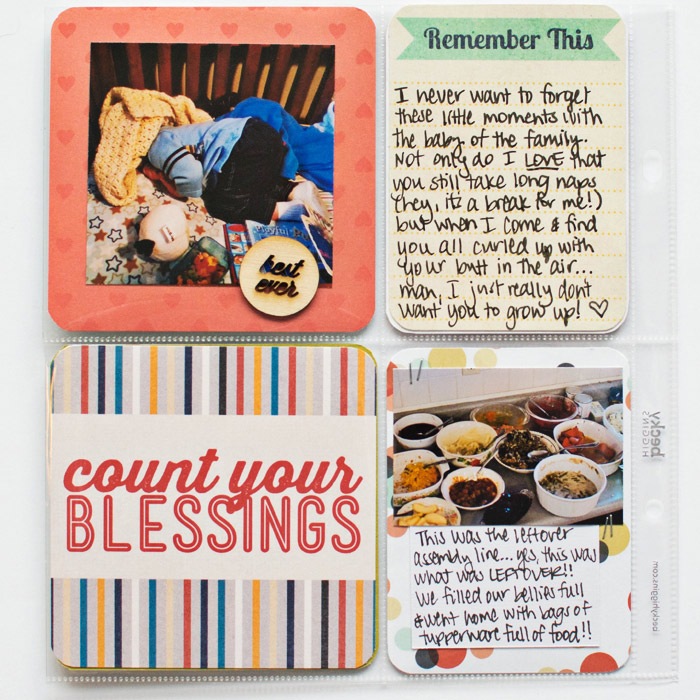 best
ever
Remember This
I never want to forget
these little moments with
the baby of the family.
Not only do I LOVE that
you still take long naps
(hey, it's a break for me!)
but when I come & find
you all curled up with
your butt in the air...
man, I just really don't
want you to grow up! ♡
count your
BLESSINGS
This was the leftover
assembly line... yes, this was
what was LEFTOVER!!
We filled our bellies full
& went home with bags of
tupperware full of food!!
becky
HIGGINS
beckyhiggins.com